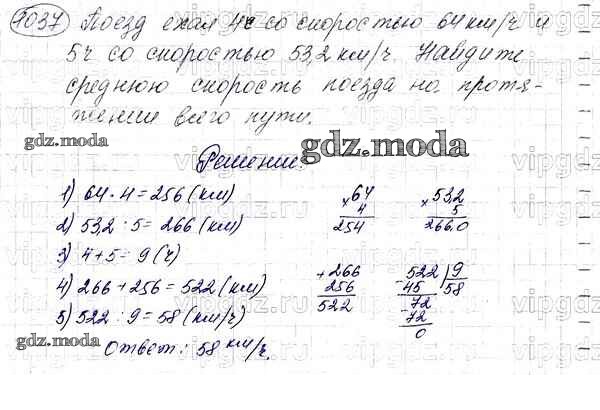 1037 Поезд ехал 4с со скоростью 64 км/ч и
5ч со скоростью 53,2 км/ч. Найдите
среднюю скорость поезда на протя-
жении всего пути.
gdz.moda
gdz.moda
Решение.
1) 64 · 4 = 256 (км)
2) 53,2 : 5 = 266 (км)
3) 4+5 = 9 (ч)
4) 266 + 256 = 522 (км)
5) 522 : 9 = 58 (км/ч)
Ответ: 58 км/ч.
× 64
4
254
× 53,2
5
266,0
+ 266
256
522
522 9
- 45 58
- 72
72
0
gdz.moda
vipgdz.ru